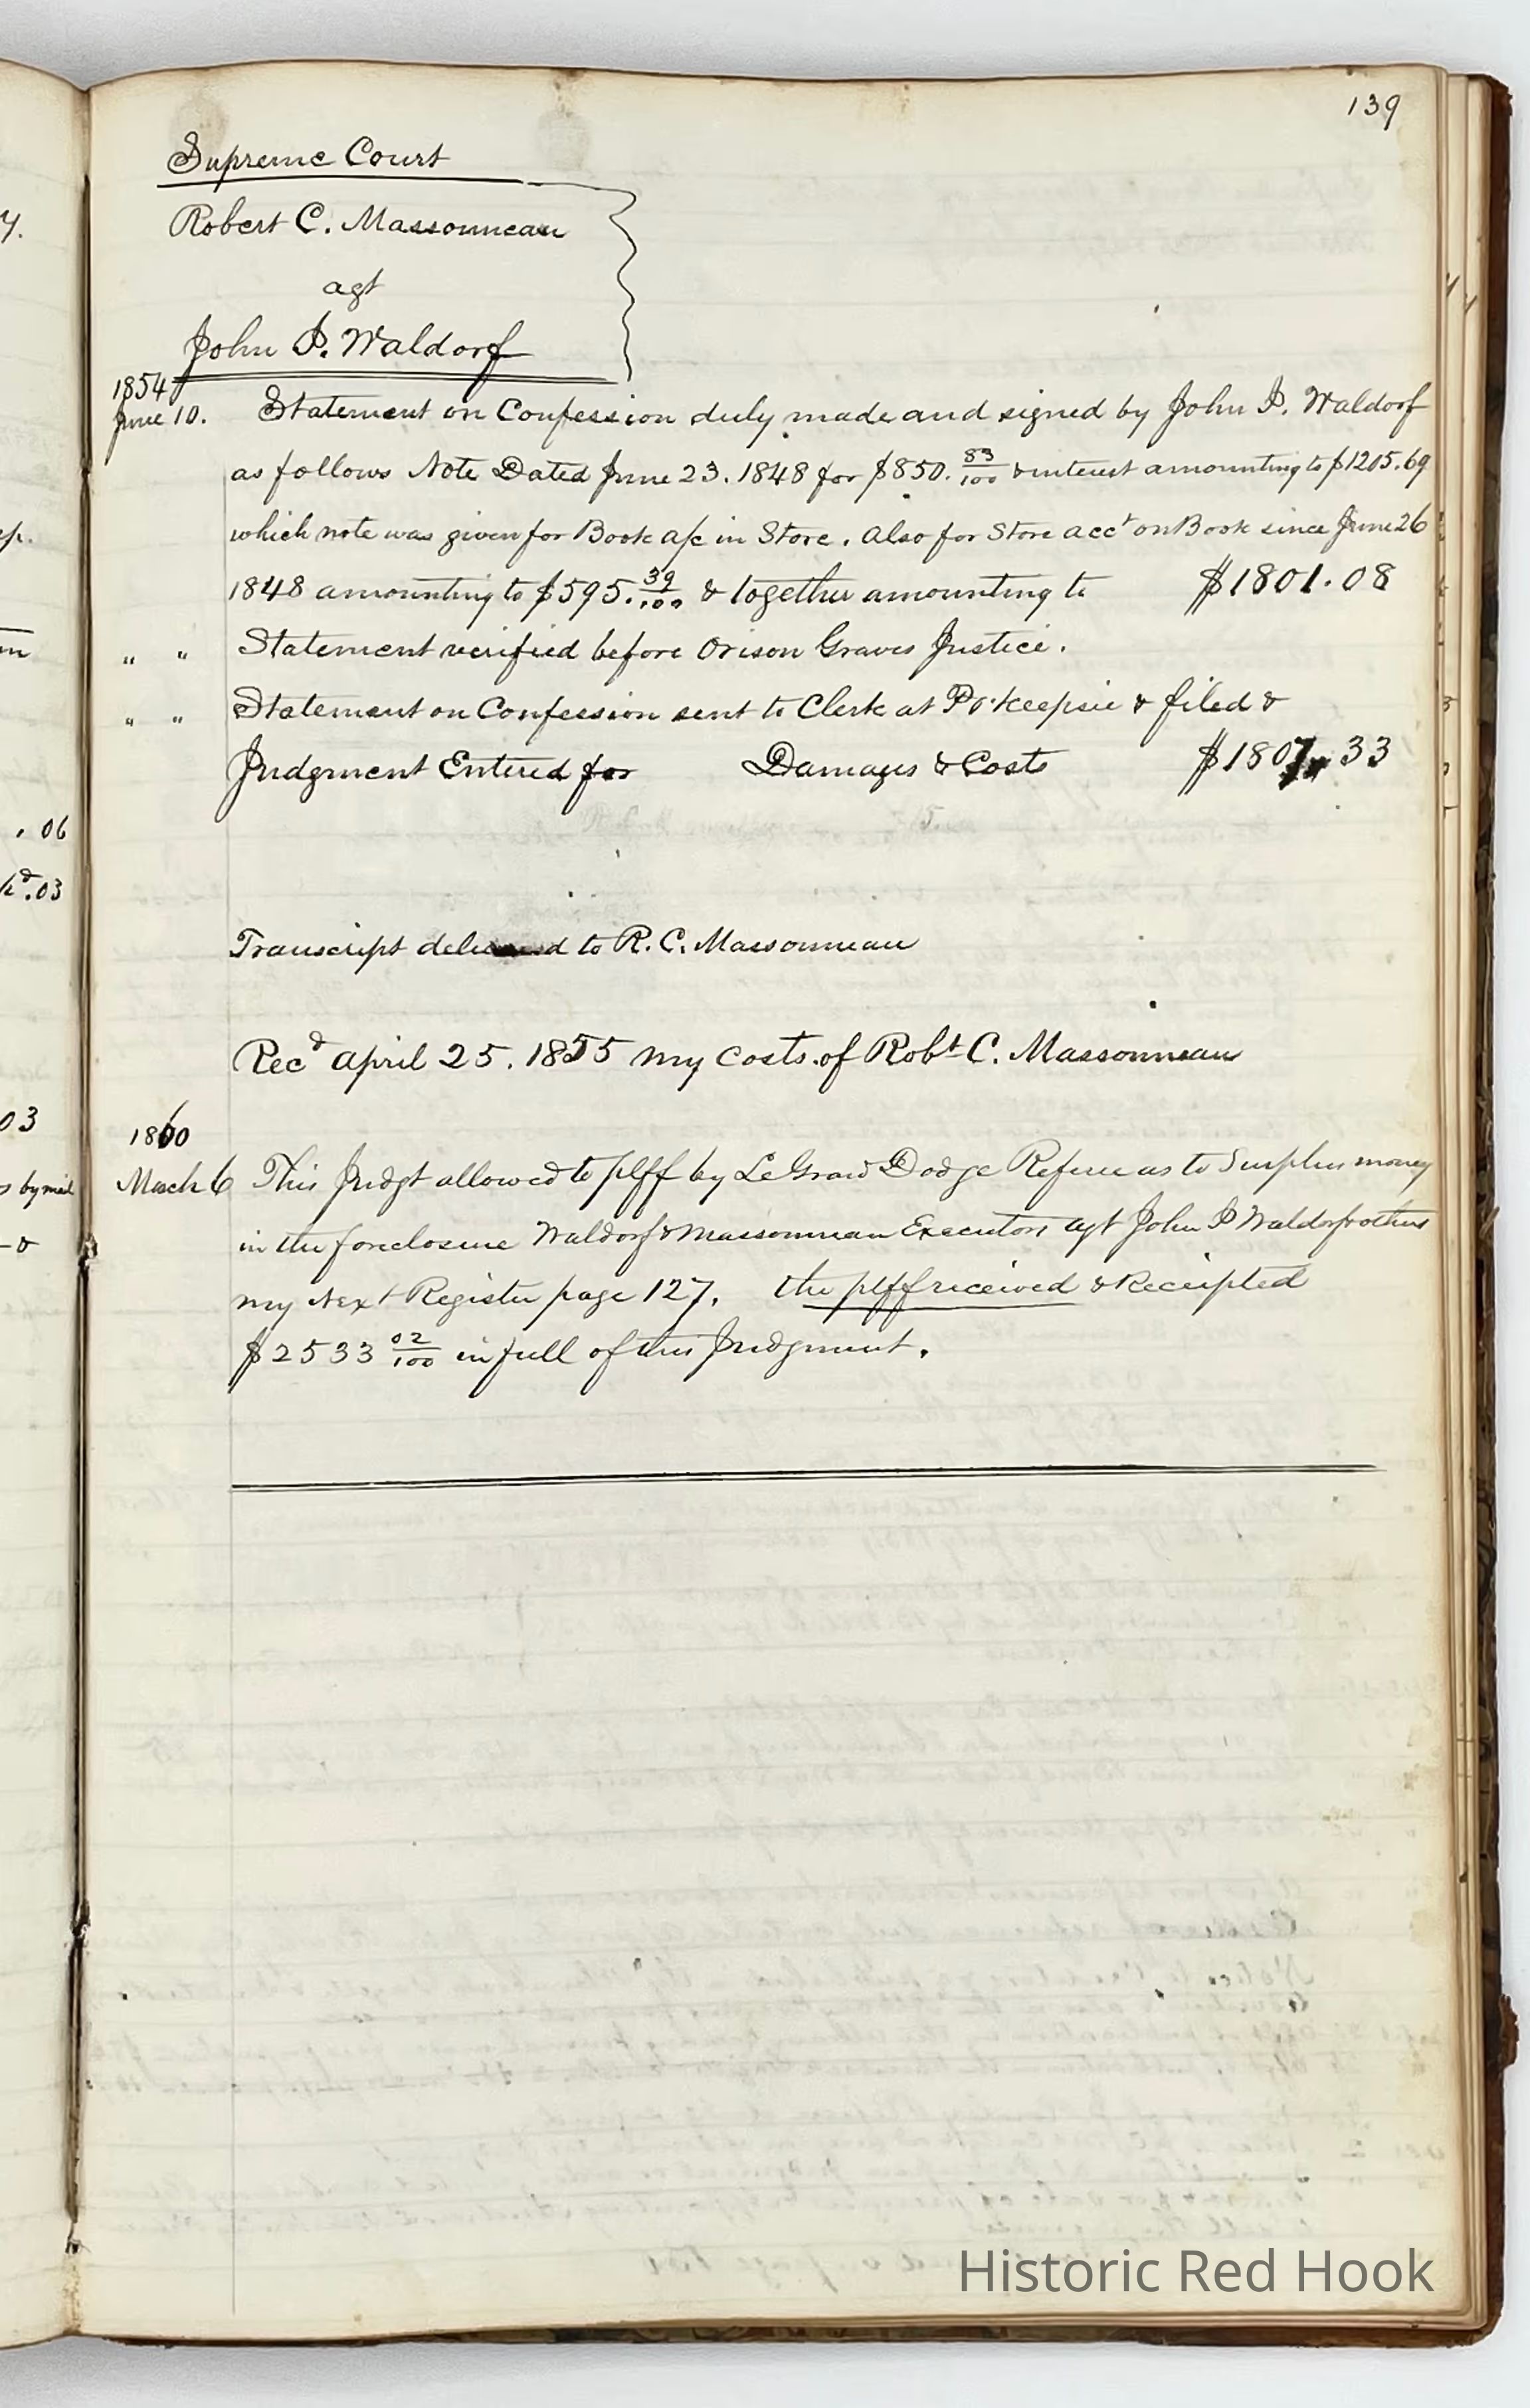 139
Supreme Court
Robert C. Massonneau
agt
John P. Waldorf
1854
June 10. Statement on Confession duly made and signed by John P. Waldorf
as follows Note Dated June 23. 1848 for $850. 83/100 & interest amounting to $1205.69
which note was given for Book a/c in Store. Also for Store acct on Book since June 26
1848 amounting to $595. 39/100 & together amounting to $1801.08
" " Statement verified before Orison Graves Justice.
" " Statement on Confession sent to Clerk at Po'keepsie & filed &
Judgment Entered for Damages & Costs $1807.33
Transcript delivered to R. C. Massonneau
Recd April 25. 1855 my costs of Robt C. Massonneau
1860
March 6 This Judgt allowed to plff by LeGrand Dodge Referee as to Surplus money
in the foreclosure Waldorf & Massonneau Executors agt John P Waldorf & others
my Next Register page 127. the plff received & Receipted
$2533 02/100 in full of this Judgment.
7.
ep.
. 06
kd.03
03
by mail
Historic Red Hook